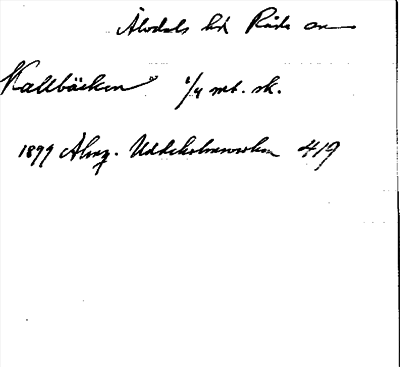 Älvdals hd Råda sn
Kallbäcken 1/4 mt. sk.
1899 Älvg. Uddeholmsverken 419